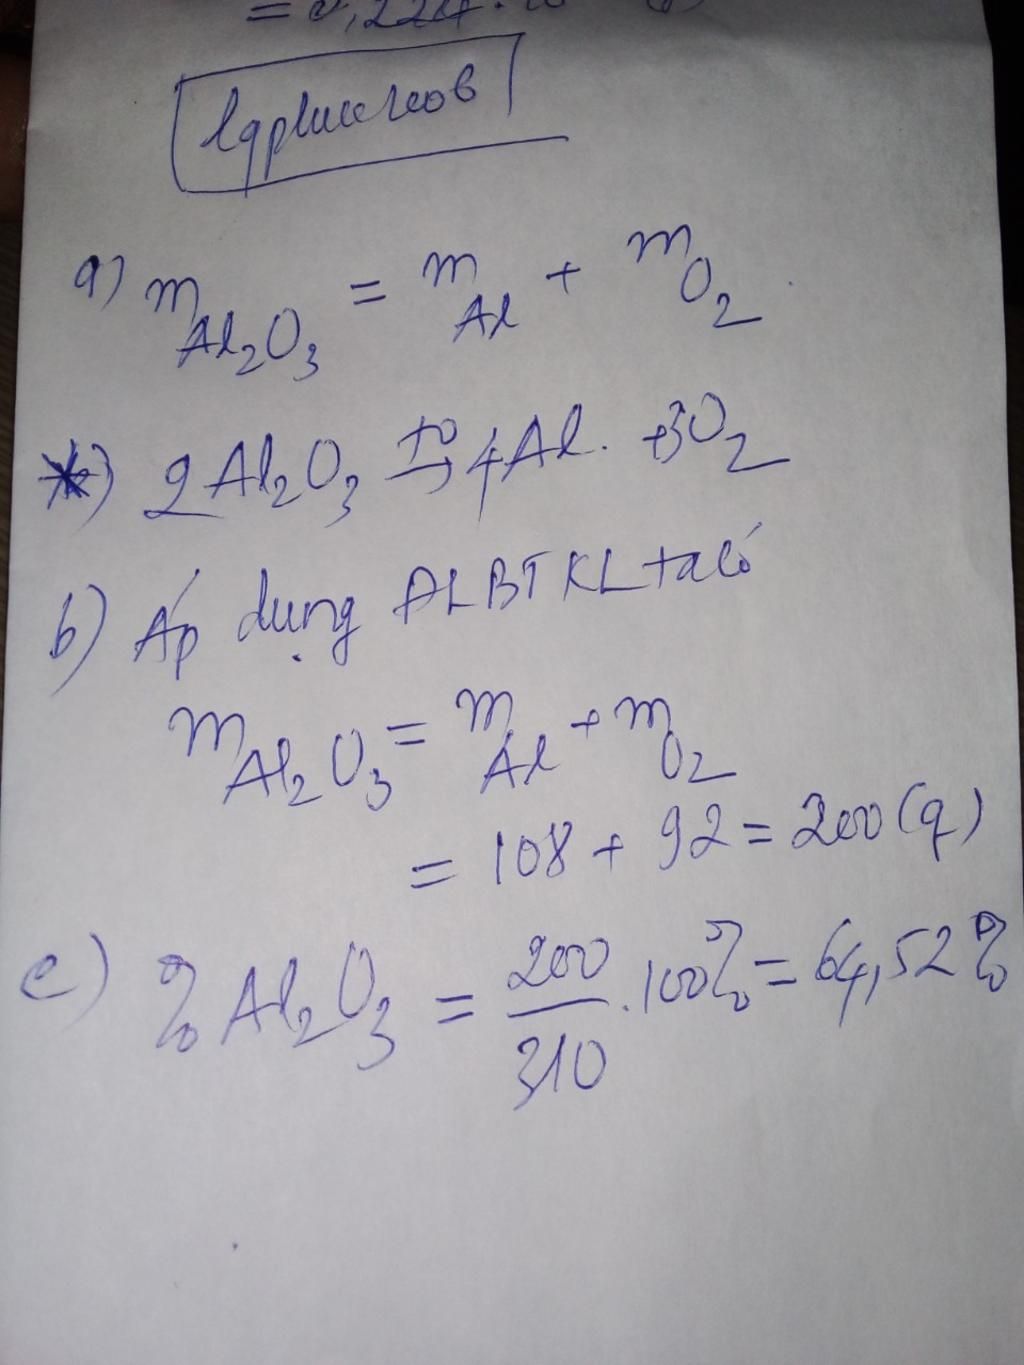 a) m Al₂O₃ = m Al + m O₂
) 2Al₂O₃ t° → 4Al. +3O₂
b) Áp dụng ĐLBTKL ta có
m Al₂O₃ = m Al + m O₂
= 108 + 92 = 200 (g)
c) % Al₂O₃ = 200/310 . 100% = 64,52%